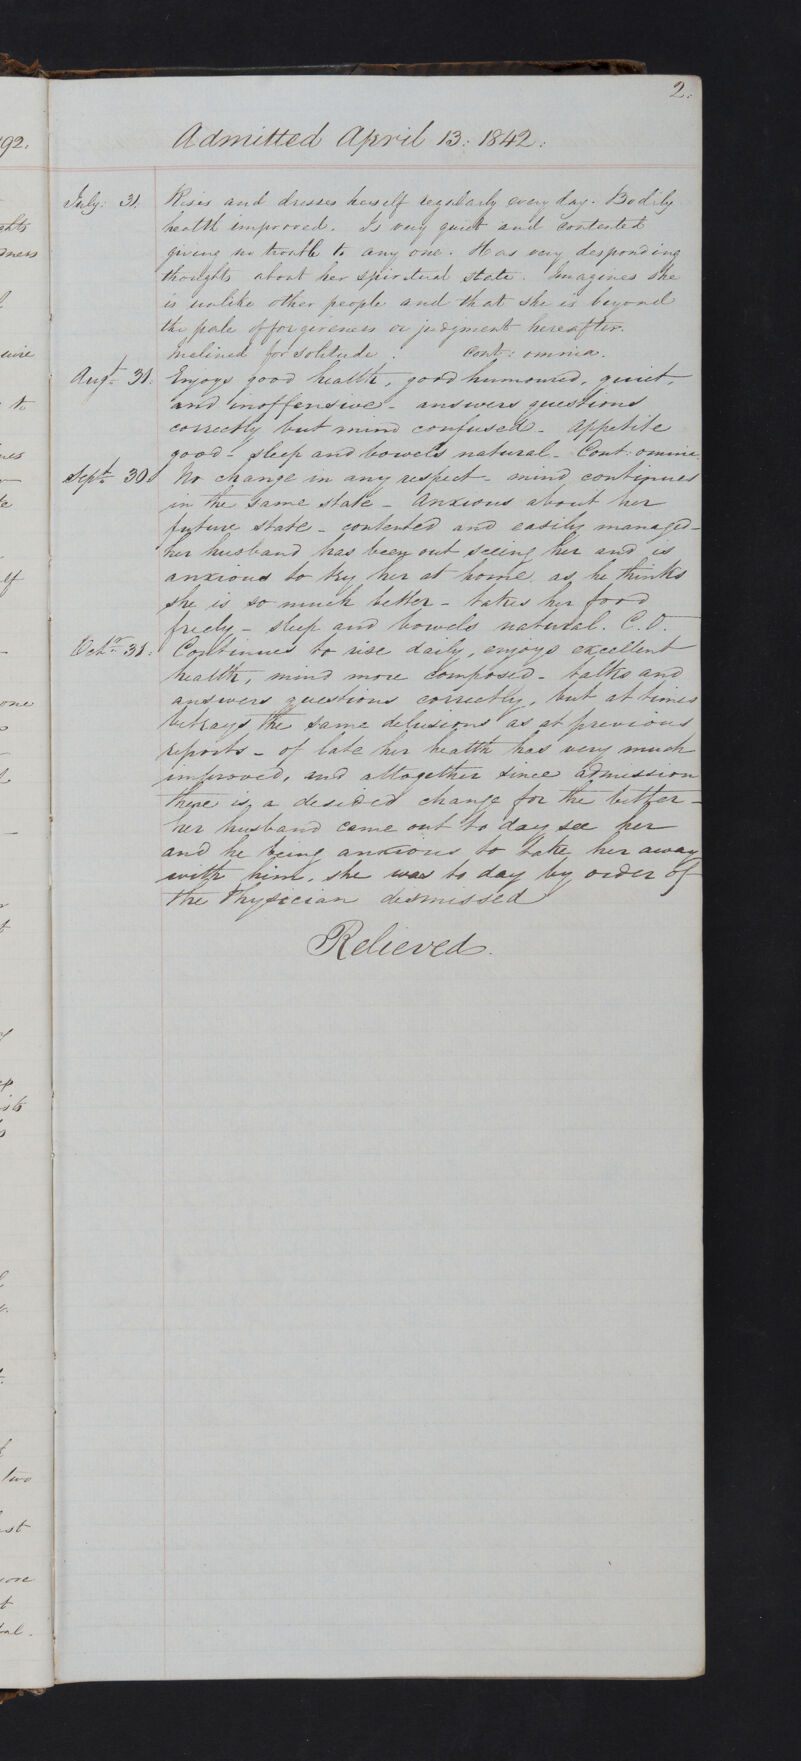 2.
Admitted April 13: 1842:
July: 31. Rises and dresses herself regularly every day. Bodily
health improved. Is very quiet and contented
giving no trouble to any one. Has very desponding
thoughts about her spiritual state. Imagines she
is unlike other people and that she is beyond
the pale of forgiveness or judgment hereafter.
Inclined for solitude. Cont: omnia.
Augt. 31. Enjoys good health, good humoured, quiet,
and inoffensive - answers questions
correctly but mind confused - appetite
good - sleep and bowels natural - Cont: omnia
Sept. 30. No change in any respect - mind continues
in the same state - Anxious about her
future state - contented and easily managed -
her husband has been out seeing her and is
anxious to try her at home, as he thinks
she is so much better - takes her food
freely - sleep and bowels natural. C. O.
Octr. 31: Continues to rise daily, enjoys excellent
health, mind more composed - talks and
answers questions correctly, but at times
betrays the same delusions as at previous
reports - of late her health has very much
improved, and altogether since admission
there is a desided change for the better -
her husband came out to day see her
and he being anxious to take her away
with him, she was to day by order of
the Physician dismissed
Relieved.